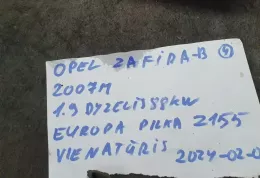 OPEL ZAFIRA-B 9
2007M
1.9 DYZELIS 88KW
EUROPA PILKA Z155
VIENATŪRIS 2024-02-0